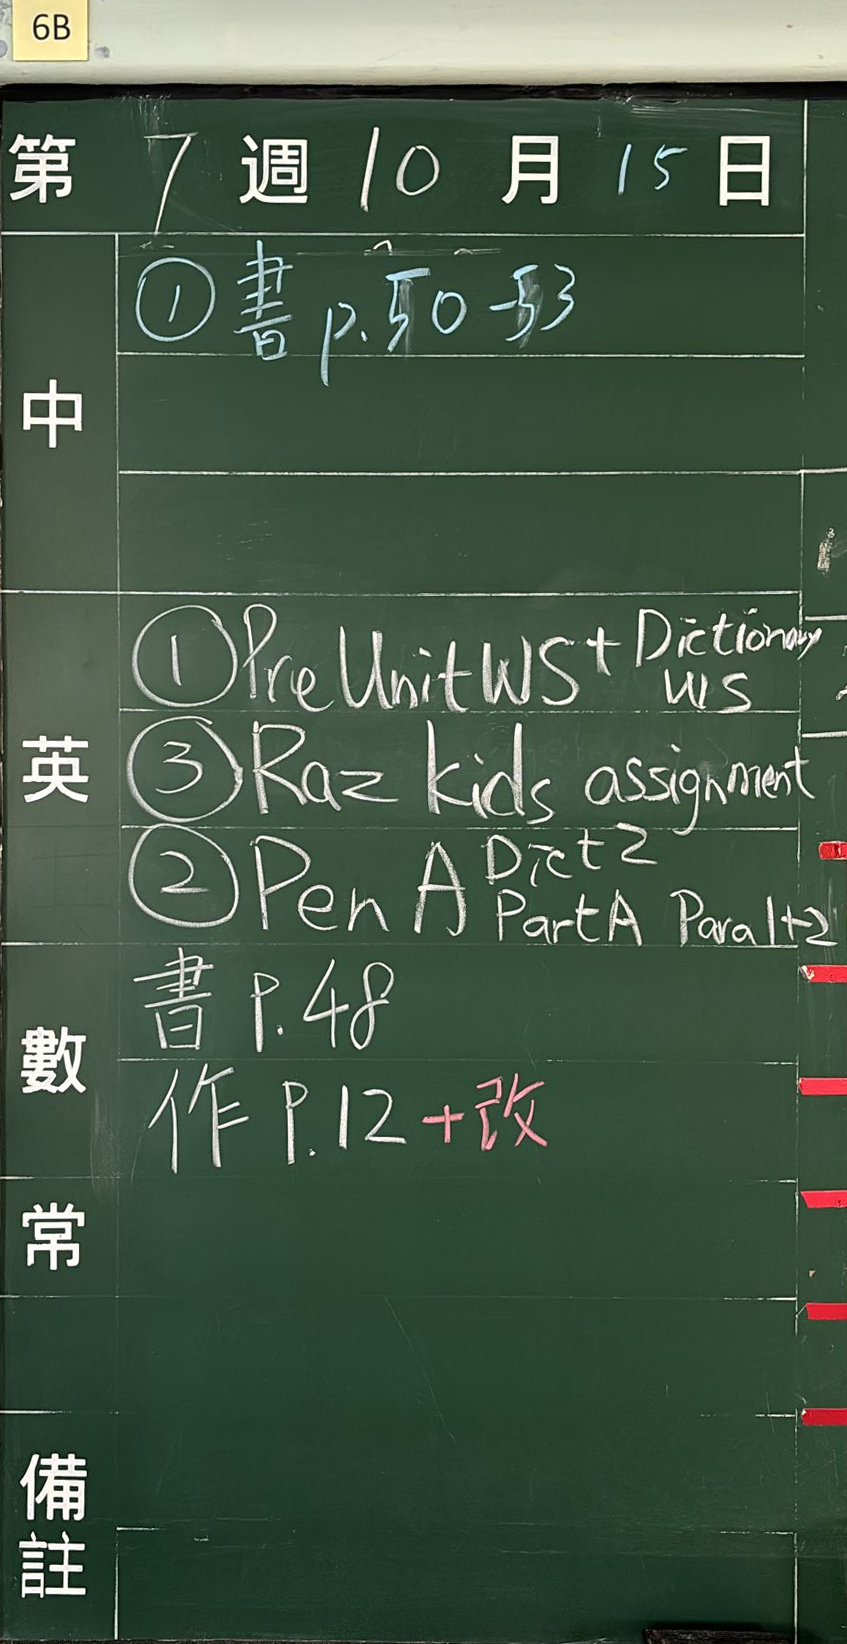 6B
第 7 週 10 月 15 日
中
① 書 p.50-53
英
① Pre Unit WS + Dictionary WS
③ Raz kids assignment
② Pen A Dict 2 Part A Para 1+2
數
書 P.48
作 P.12 + 改
常
備註